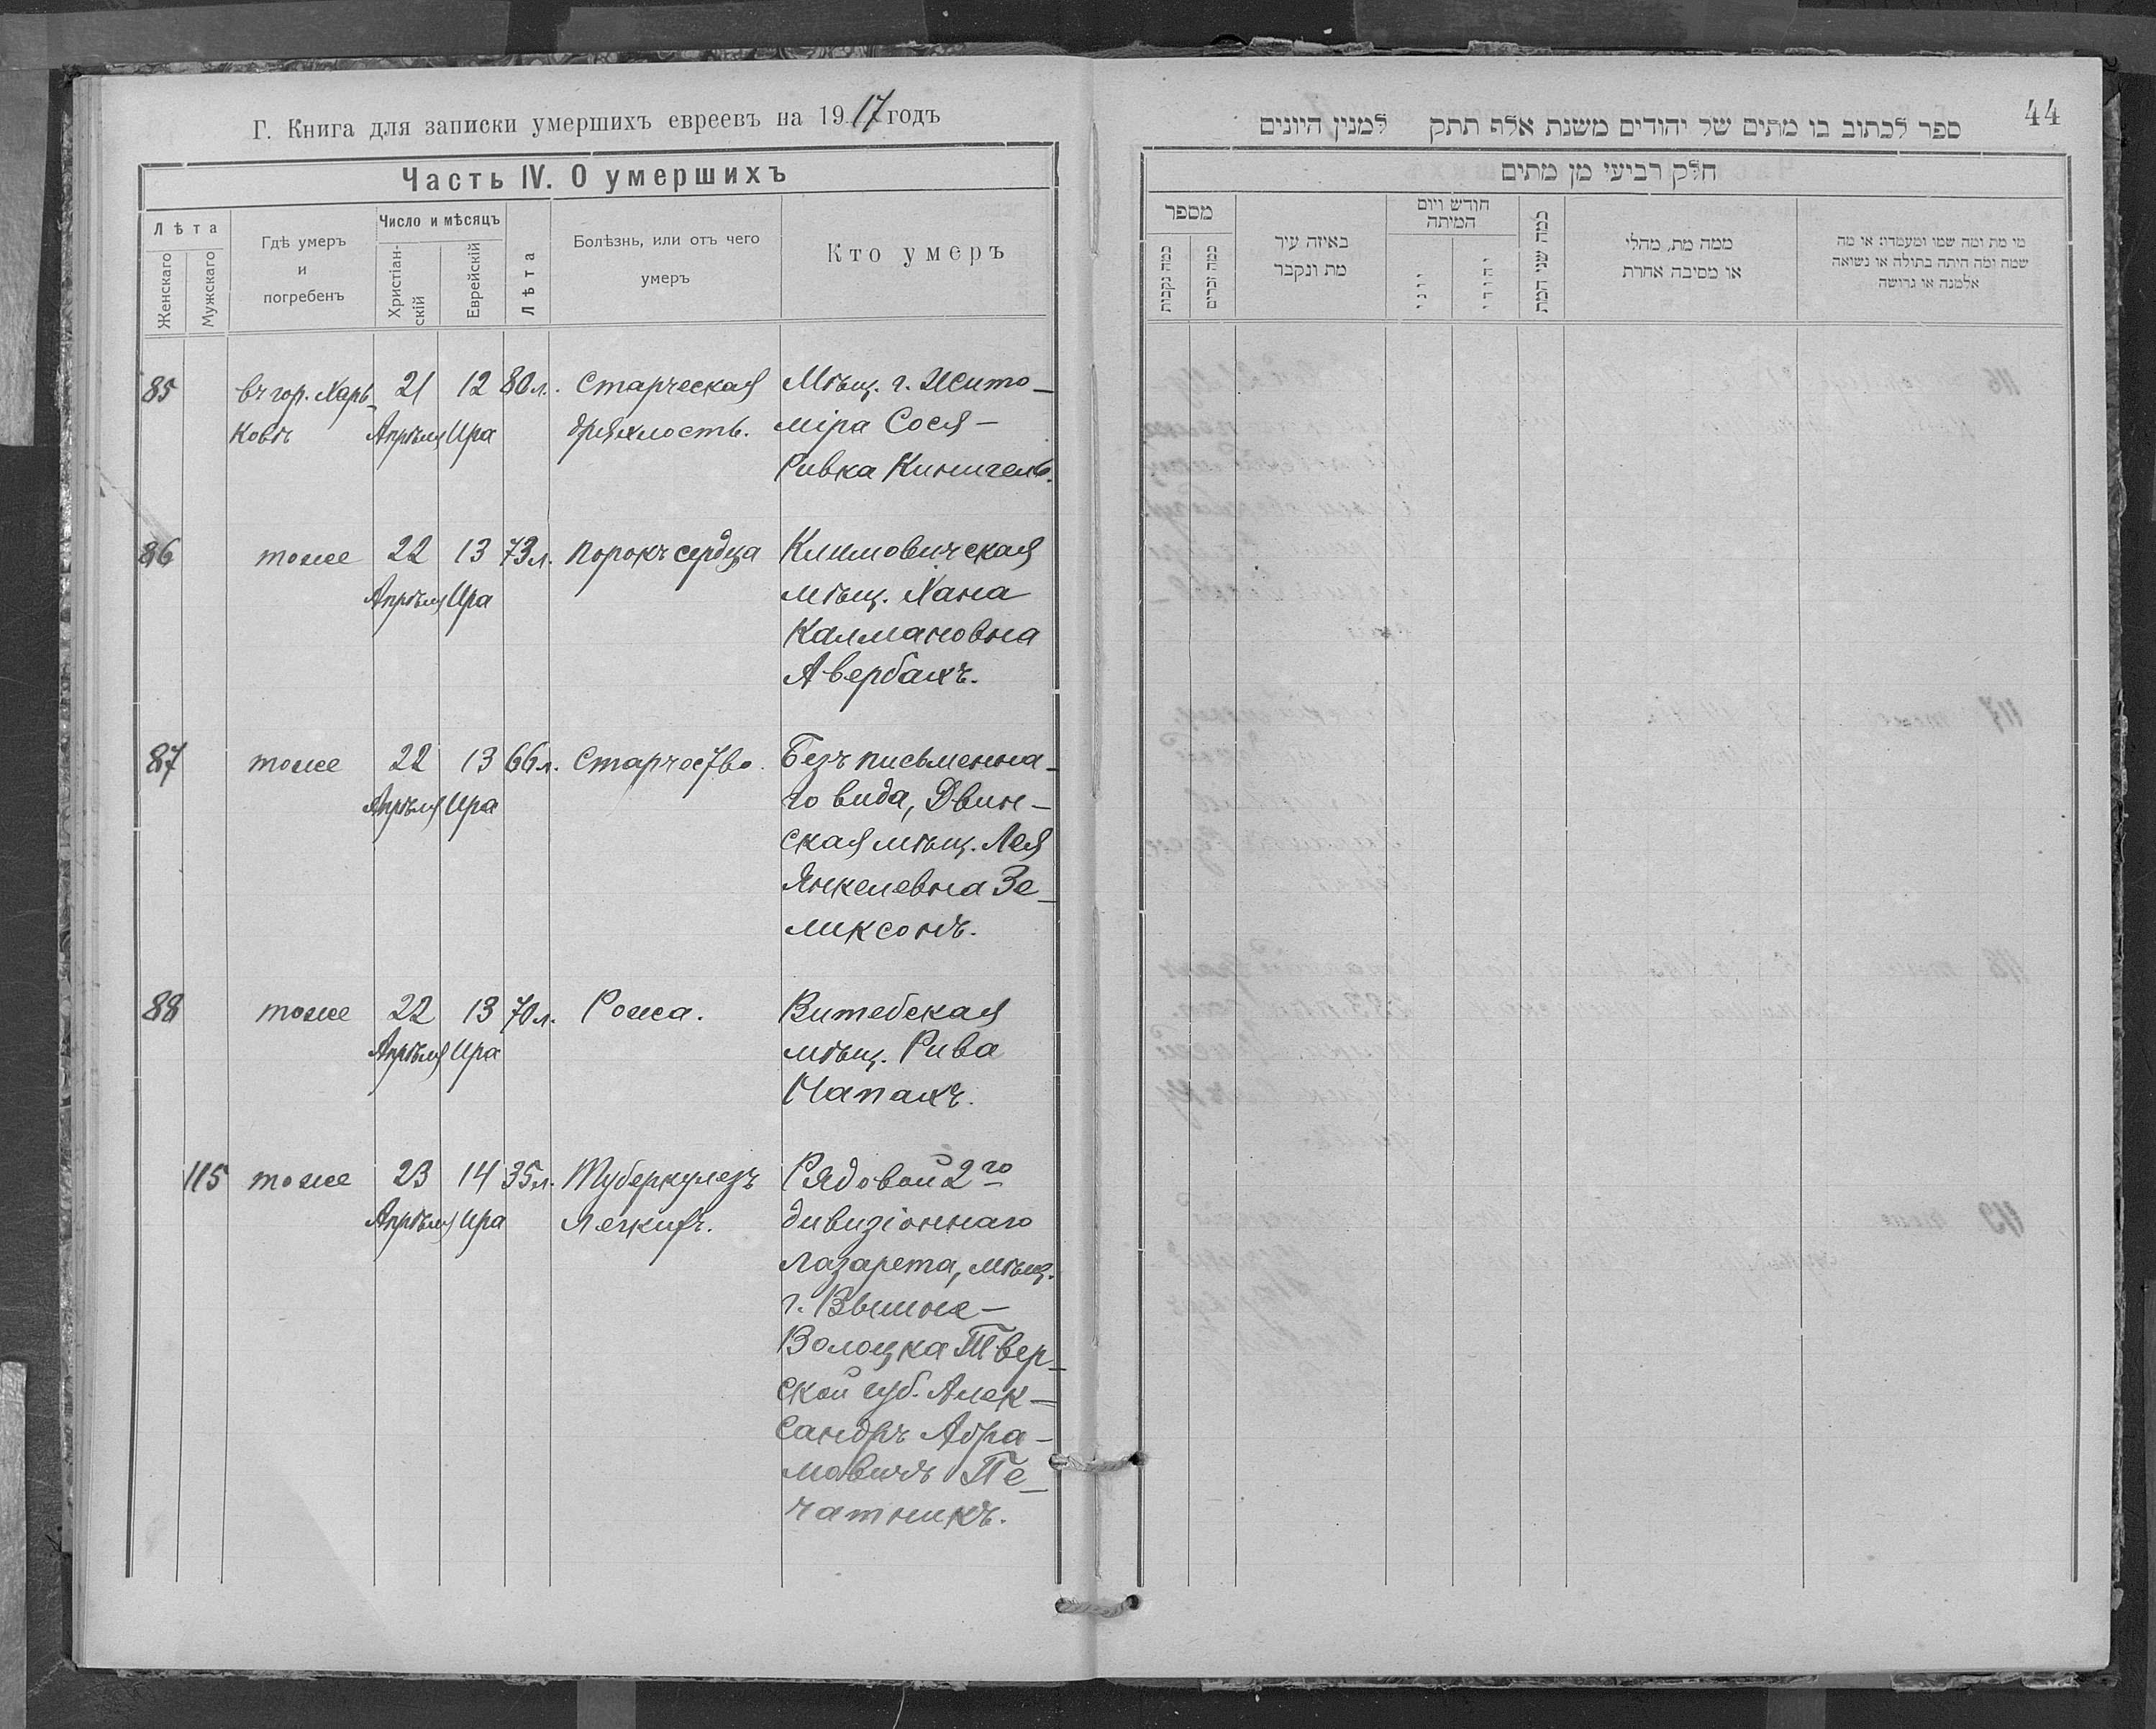 Г. Книга для записки умершихъ евреевъ на 1917 годъ
Часть IV. О умершихъ
Лѣта
Женскаго
Мужскаго
Гдѣ умеръ
и
погребенъ
Число и мѣсяцъ
Христіан-
скій
Еврейскій
Лѣта
Болѣзнь, или отъ чего
умеръ
Кто умеръ
85 въ гор. Харь- 21 12 80 л. Старческая Мѣщ. г. Жито-
ковѣ Апрѣля Ира дряхлость. міра Сося-
Ривка Кинигель.
86 тоже 22 13 73 л. порокъ сердца Климовичская
Апрѣля Ира мѣщ. Хана
Калмановна
Авербахъ.
87 тоже 22 13 66 л. Старчество. Безъ письменна-
Апрѣля Ира го вида, Двин-
ская мѣщ. Лея
Янкелевна Зе-
ликсонъ.
88 тоже 22 13 70 л. Рожа. Витебская
Апрѣля Ира мѣщ. Рива
Чапахъ.
115 тоже 23 14 35 л. Туберкулезъ Рядовой 2го
Апрѣля Ира легкихъ. дивизіоннаго
лазарета, мѣщ.
г. Вышне-
Волоцка Твер-
ской губ. Алек-
сандръ Абра-
мовичъ Пе-
чатникъ.
44
ספר לכתוב בו מתים של יהודים משנת אלף תתק למנין היונים
חלק רביעי מן מתים
מספר
כמה נקבות
כמה זכרים
באיזה עיר
מת ונקבר
חודש ויום
המיתה
יוני
יהודי
כמה שני המת
ממה מת, מחלי
או מסיבה אחרת
מי מת ומה שמו ומעמדו: או מה
שמה ומה היתה בתולה או נשואה
אלמנה או גרושה